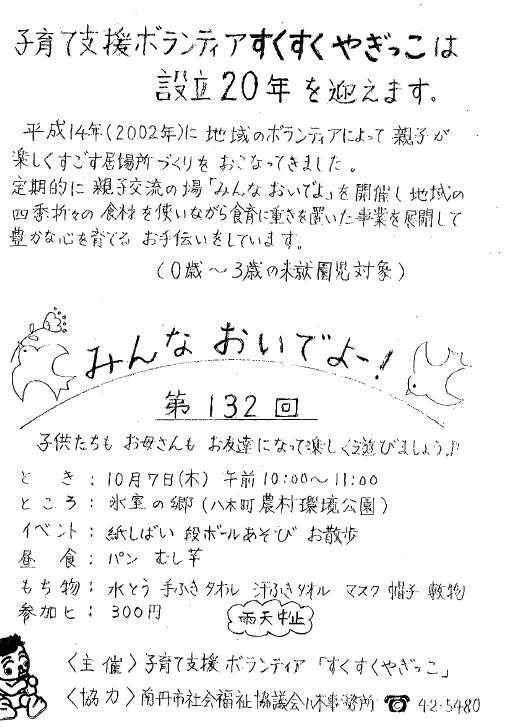 子育て支援ボランティアすくすくやぎっこは
設立20年を迎えます。
平成14年(2002年)に地域のボランティアによって親子が
楽しくすごす居場所づくりをおこなってきました。
定期的に親子交流の場「みんなおいでよ」を開催し地域の
四季折々の食材を使いながら食育に重きを置いた事業を展開して
豊かな心を育てるお手伝いをしています。
(0歳〜3歳の未就園児対象)
みんなおいでよー!
第132回
子供たちもお母さんもお友達になって楽しく遊びましょう♪
とき:10月7日(木) 午前10:00〜11:00
ところ:氷室の郷(八木町農村環境公園)
イベント:紙しばい 段ボールあそび お散歩
昼食:パン むし芋
もち物:水とう 手ふきタオル 汗ふきタオル マスク 帽子 敷物
参加ヒ:300円
雨天中止
〈主催〉子育て支援ボランティア「すくすくやぎっこ」
〈協力〉南丹市社会福祉協議会八木事務所 ☎ 42-5480